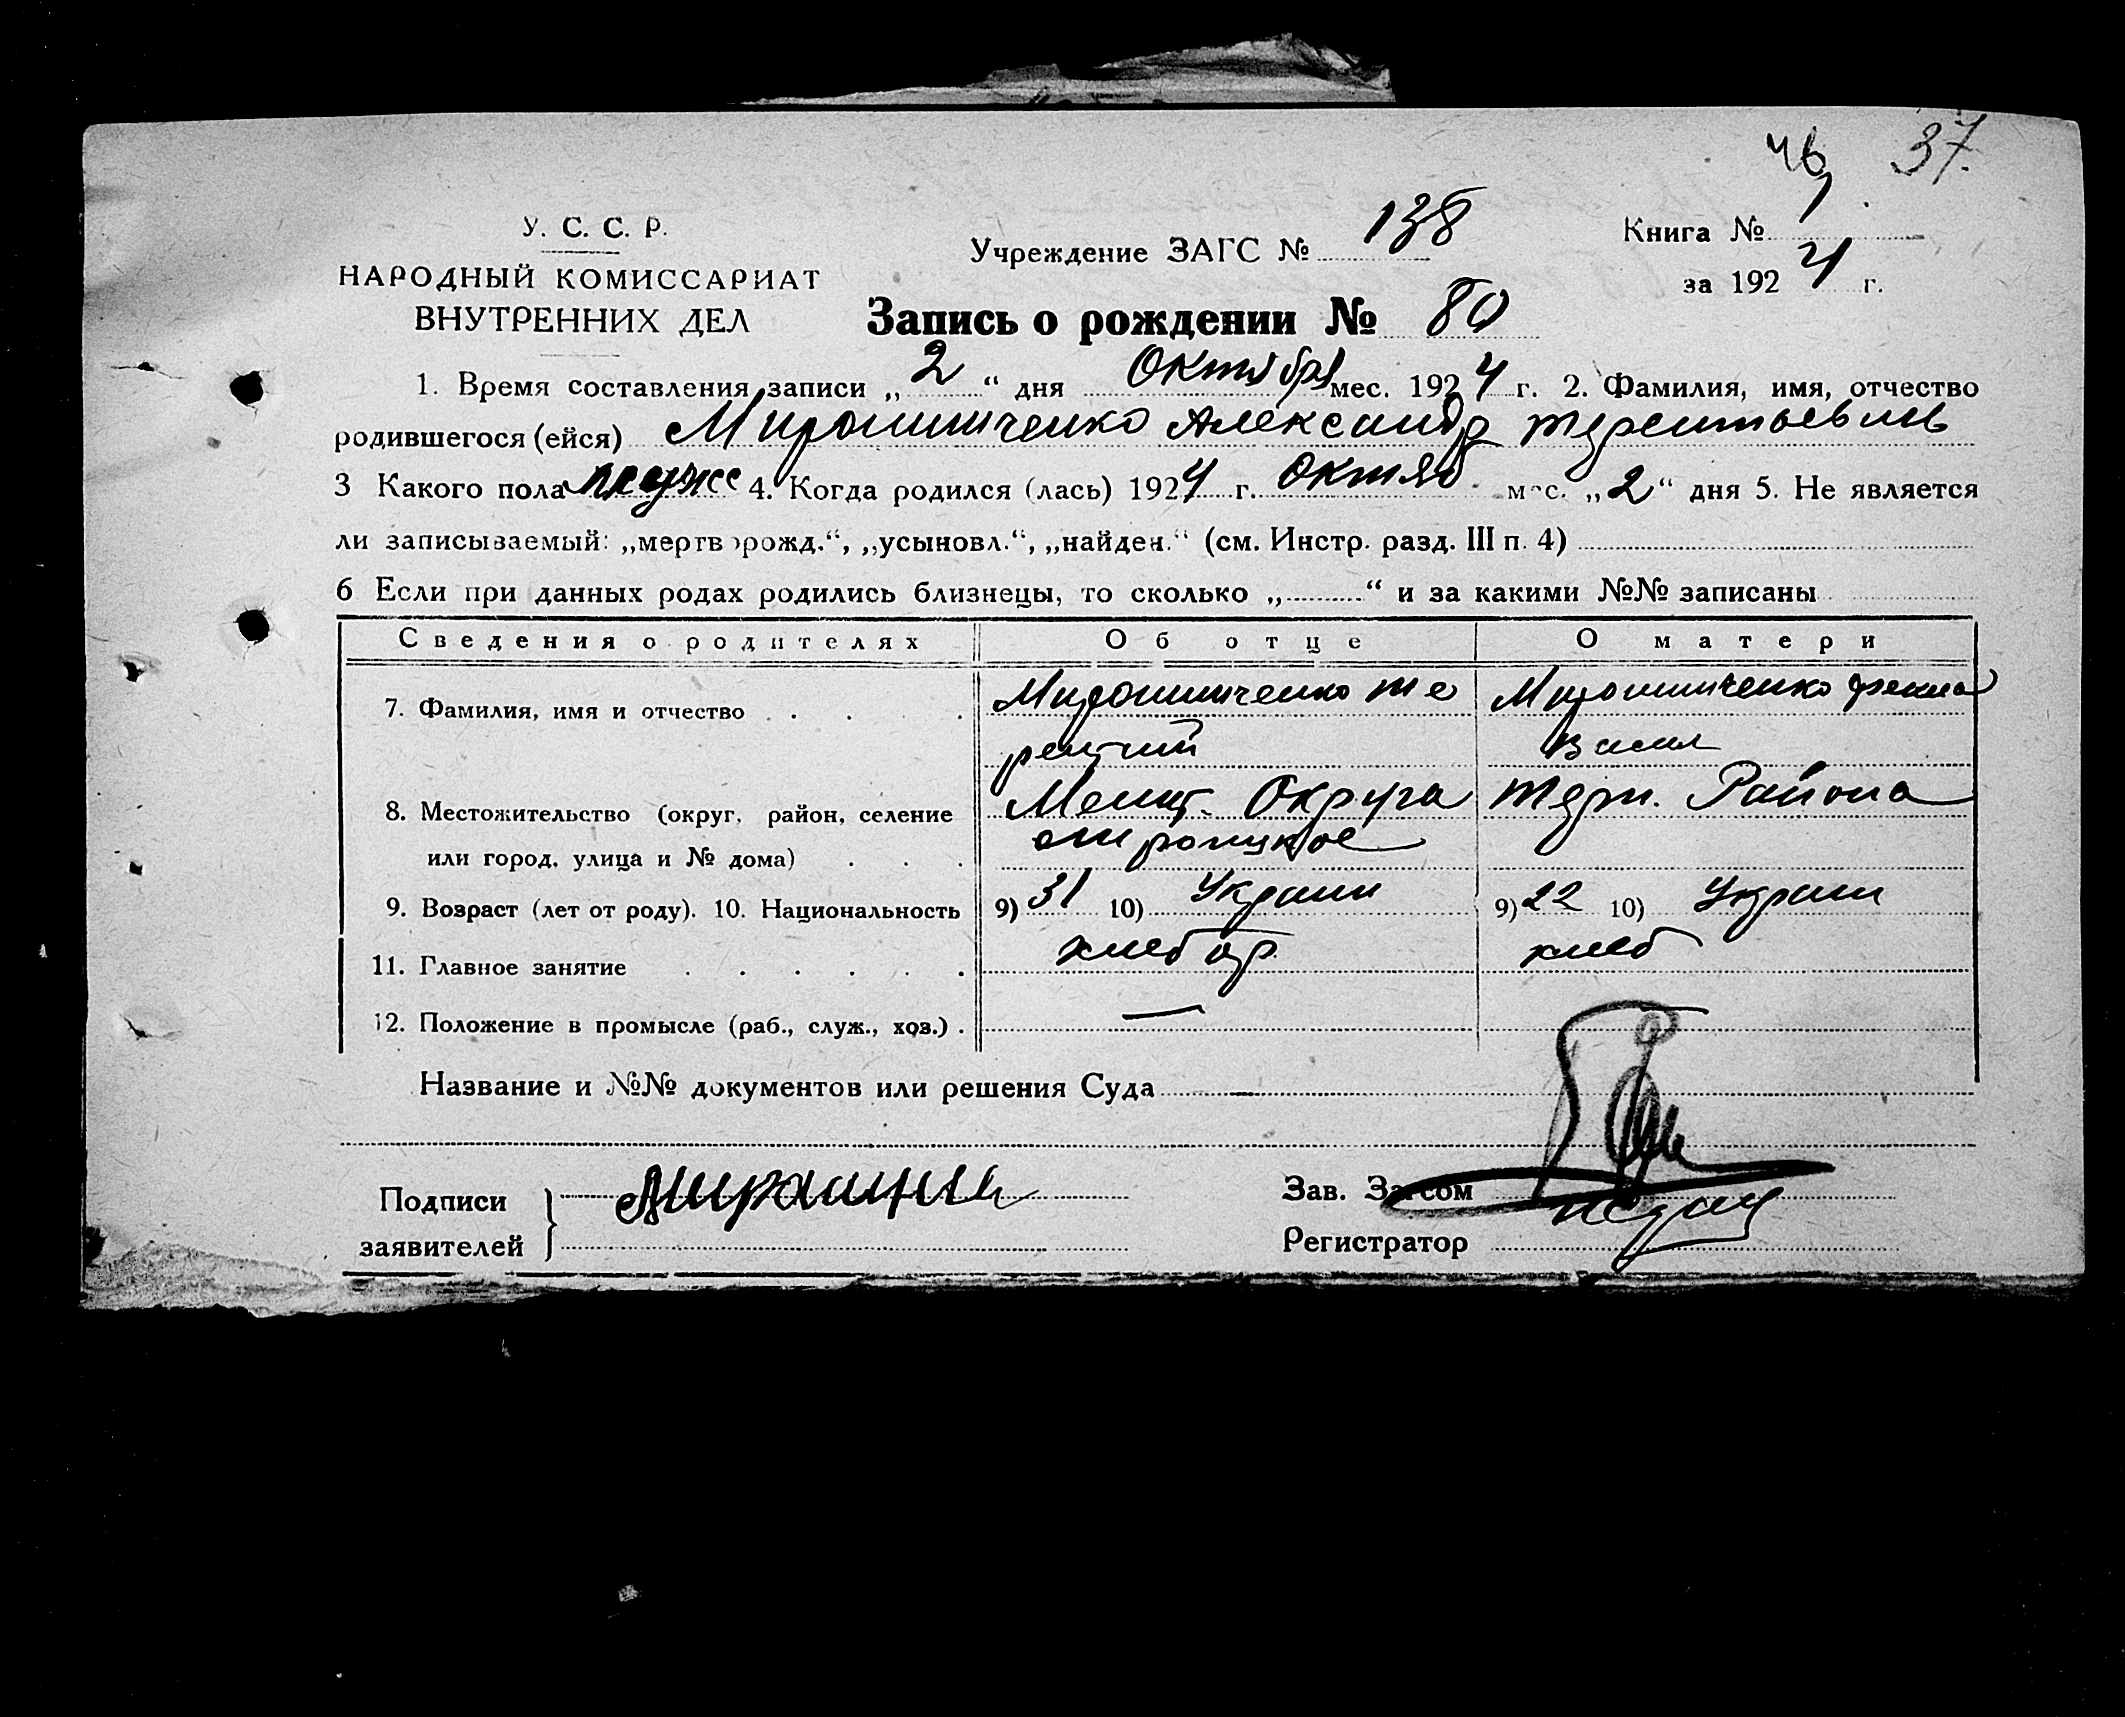 37.
У. С. С. Р.
НАРОДНЫЙ КОМИССАРИАТ
ВНУТРЕННИХ ДЕЛ
Учреждение ЗАГС № 138
Книга № 1
за 1924 г.
Запись о рождении № 80
1. Время составления записи „ 2 “ дня Октября мес. 1924 г. 2. Фамилия, имя, отчество
родившегося (ейся) Мирошниченко Александр Терентьевич
3 Какого пола мужс 4. Когда родился (лась) 1924 г. Октяб мес. „2“ дня 5. Не является
ли записываемый: „мертворожд.“, „усыновл.“, „найден.“ (см. Инстр. разд. III п. 4)
6 Если при данных родах родились близнецы, то сколько „ “ и за какими №№ записаны
Сведения о родителях Об отце О матери
7. Фамилия, имя и отчество Мирошниченко Те Мирошниченко
рентий Васил
8. Местожительство (округ, район, селение Мелит. Округа Терп. Района
или город, улица и № дома)
9. Возраст (лет от роду). 10. Национальность 9) 31 10) Украин 9) 22 10) Украин
11. Главное занятие хлебор. хлеб
12. Положение в промысле (раб., служ., хоз.) . —
Название и №№ документов или решения Суда
Подписи
заявителей
Зав. Загсом
Регистратор